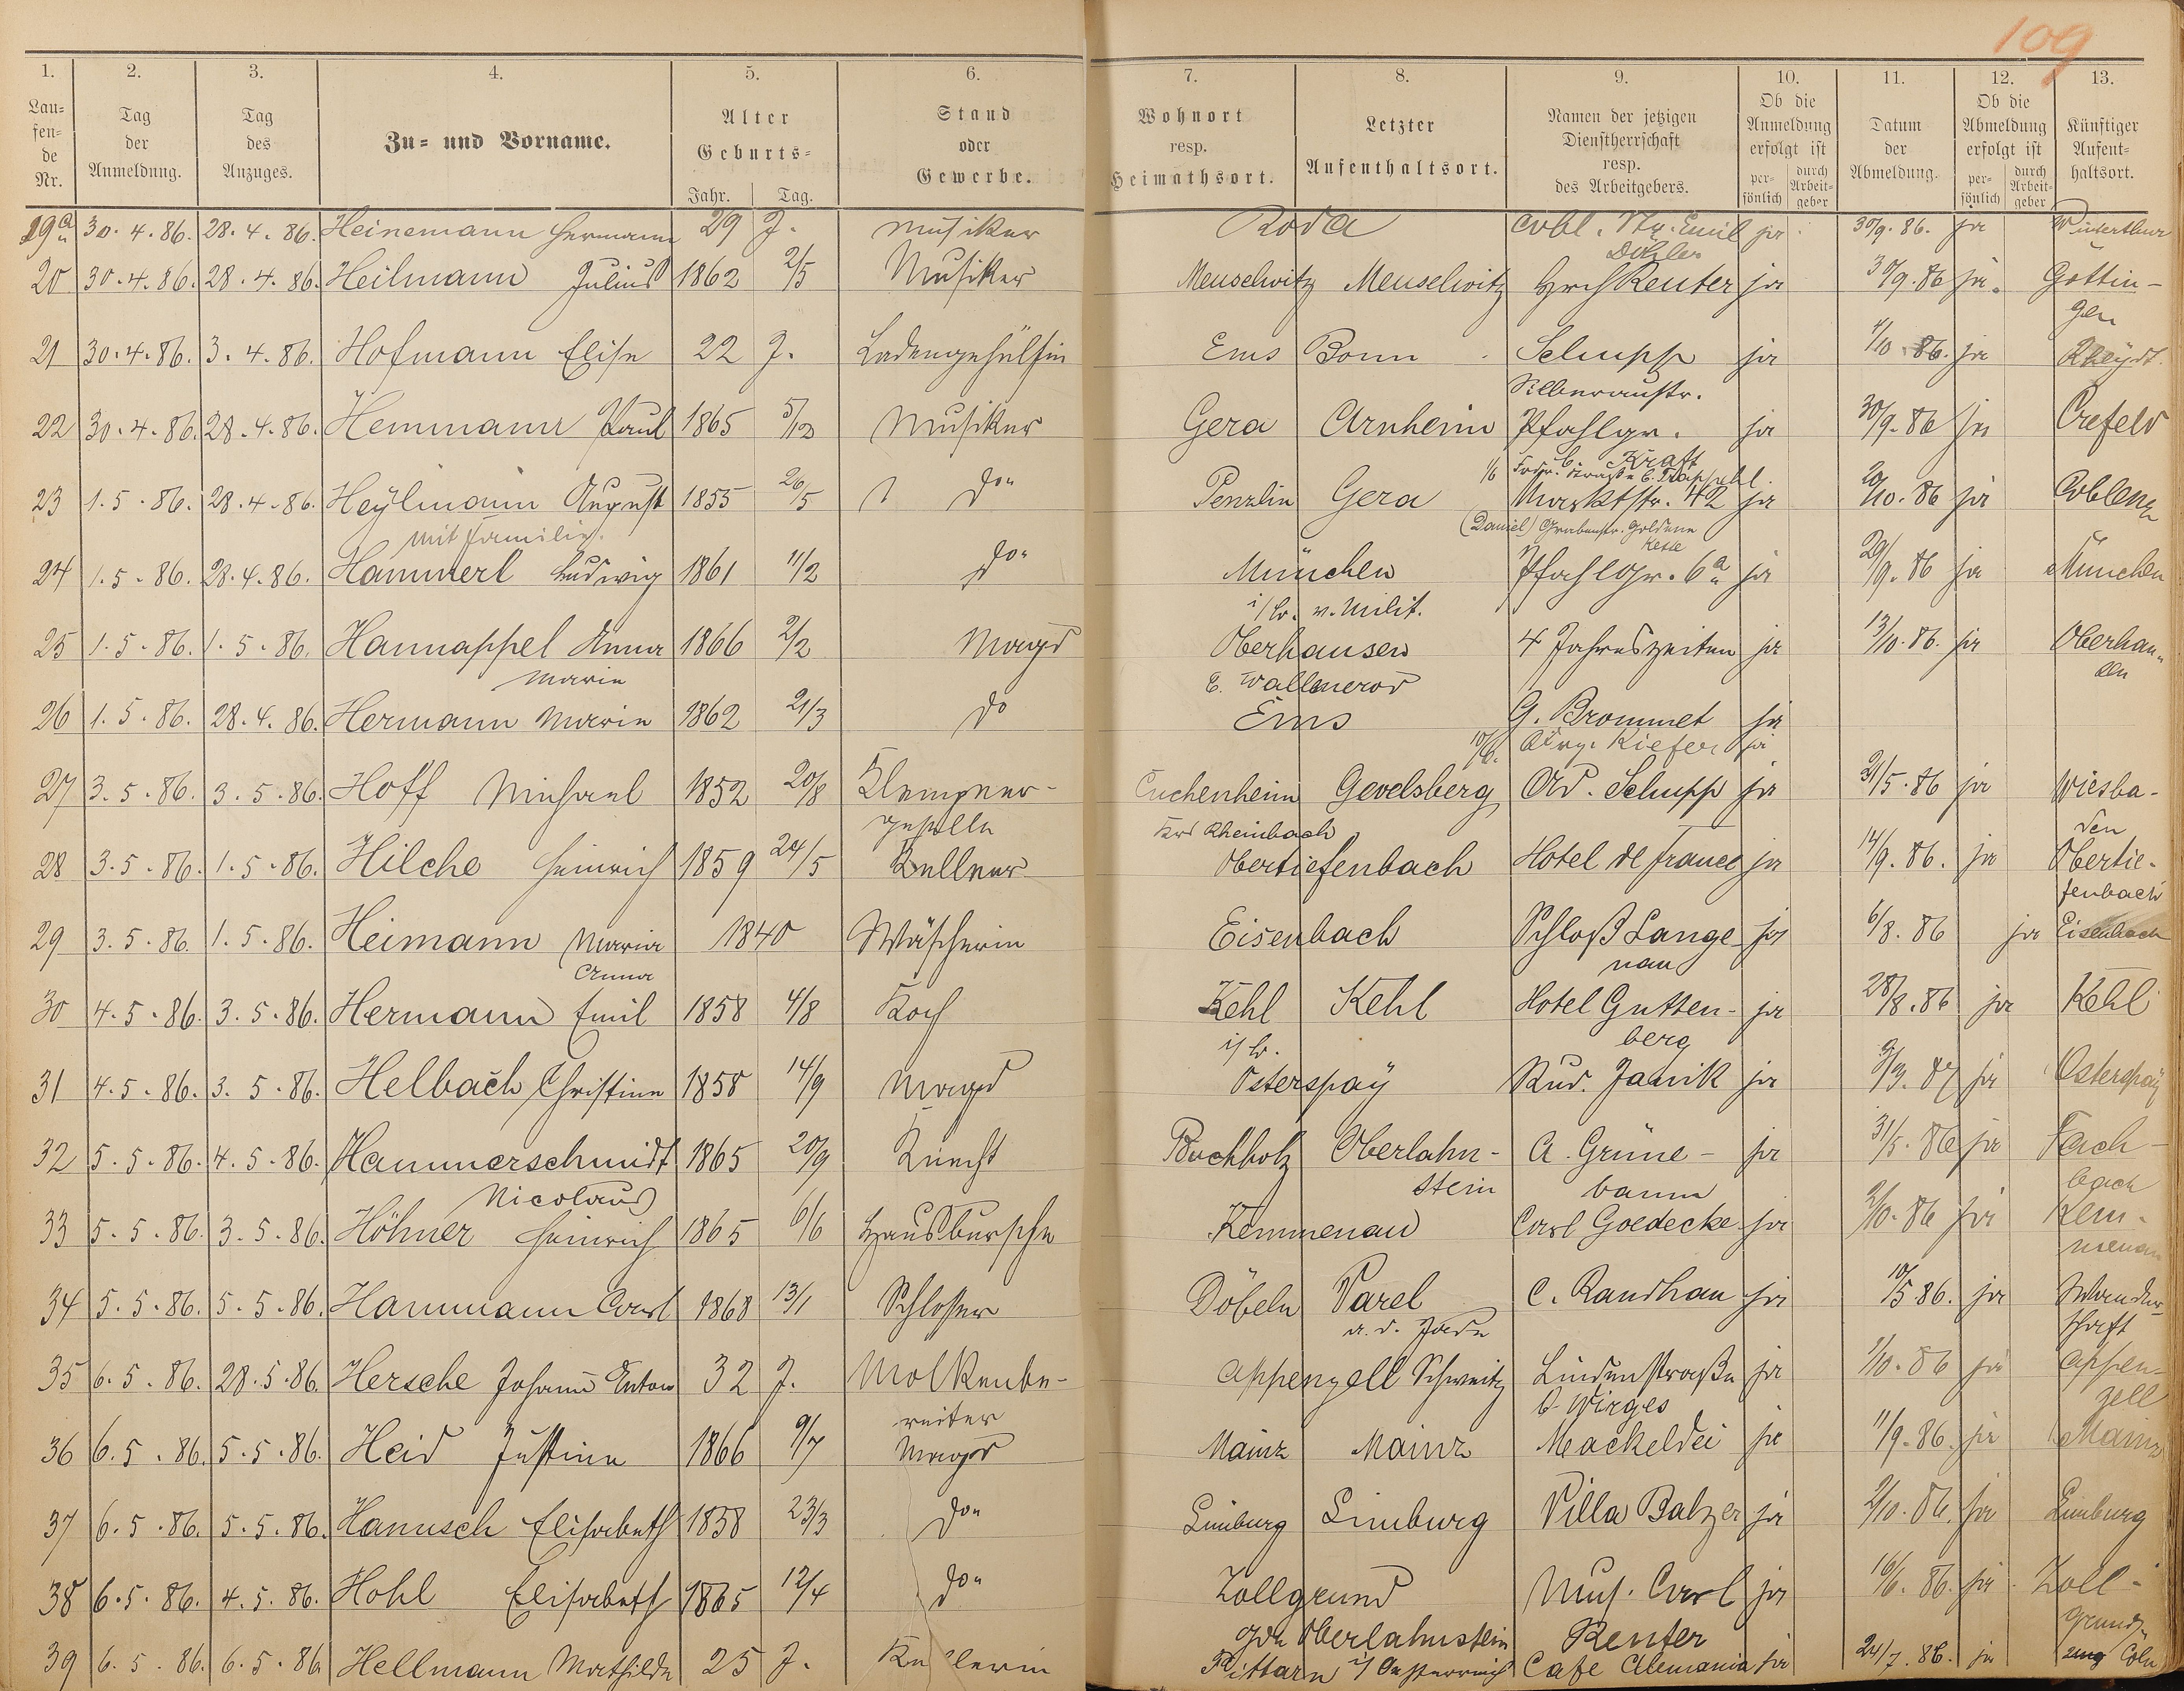 109
1. 2. 3. 4. 5. 6. 7. 8. 9. 10. 11. 12. 13.
Lau=fen=de Nr. Tag der Anmeldung. Tag des Anzuges. Zu= und Vorname. Alter Geburts= Jahr. Tag. Stand oder Gewerbe. Wohnort resp. Heimathsort. Letzter Aufenthaltsort. Namen der jetzigen Dienstherrschaft resp. des Arbeitgebers. Ob die Anmeldung erfolgt ist per=sönlich durch Arbeit=geber Datum der Abmeldung. Ob die Abmeldung erfolgt ist per=sönlich durch Arbeit=geber Künftiger Aufent=haltsort.
19a 30.4.86. 28.4.86. Heinemann Hermann 29 J. Musiker Roda Cobl. Str. Emil ja 30/9.86. ja Winterthur
20 30.4.86. 28.4.86. Heilmann Julius 1862 2/5 Musiker Meuselwitz Meuselwitz Hrch Reuter ja 30/9.86 ja. Göttin-
gen
21 30.4.86. 3.4.86. Hofmann Elise 22 J. Ladengehülfin Ems Bonn Schupp ja 1/10.86. ja Rheydt
Silberaustr.
22 30.4.86. 28.4.86. Hemmann Paul 1865 5/12 Musiker Gera Arnheim Pfahlgr. ja 30/9.86 ja Crefeld
b. Kraft
23 1.5.86. 28.4.86. Heylmann August 1855 26/5 do Penzlin Gera Marktstr. 42 ja 20/10.86 ja Coblenz
mit Familie. (Daniel) Grabenstr. Goldene
Kette
24 1.5.86. 28.4.86. Hammerl Ludwig 1861 11/2 do München Pfahlgr. 6a ja 29/9.86 ja München
i/B. v. Milit.
25 1.5.86. 1.5.86. Hannappel Anna 1866 2/2 Magd Oberhausen 4 Jahreszeiten ja 13/10.86. ja Oberhau-
Marie b. Wallmerod sen
26 1.5.86. 28.4.86. Hermann Marie 1862 21/3 do Ems G. Brommet ja
Kiefer ja
27 3.5.86. 3.5.86. Hoff Michael 1852 20/8 Klempner- Cuchenheim Gevelsberg Ad. Schupp ja 31/5.86 ja Wiesba-
geselle Krs Rheinbach den
28 3.5.86. 1.5.86. Hilche Heinrich 1859 24/5 Kellner Obertiefenbach Hotel de France ja 14/9.86. ja Obertie-
fenbach
29 3.5.86. 1.5.86. Heimann Maria 1840 Wäscherin Eisenbach Schloß Lange ja 6/8.86 ja Eisenbach
Anna nau
30 4.5.86. 3.5.86. Hermann Emil 1858 4/8 Koch Kehl Kehl Hotel Gutten- ja 28/8.86 ja Kehl
i/B. berg
31 4.5.86. 3.5.86. Helbach Christine 1858 14/9 Magd Osterspay Rud. Janik ja 3/3.87 ja Osterspay
32 5.5.86. 4.5.86. Hammerschmidt 1865 20/9 Knecht Buchholz Oberlahn- A. Grüne- ja 31/5.86 ja Fach-
Nicolaus stein baum bach
33 5.5.86. 3.5.86. Höhner Heinrich 1865 6/6 Hausbursche Kemmenau Carl Goedecke ja 2/10.86 ja Kem-
menau
34 5.5.86. 5.5.86. Hammann Carl 1868 13/1 Schlosser Döbeln Varel C. Randhan ja 10/5 86. ja Wander-
a. d. Jade schaft
35 6.5.86. 28.5.86. Hersche Johann Anton 32 J. Molkenbe- Appenzell Schweitz Lindenstraße ja 1/10.86 ja Appen-
reiter b. Wirges zell
36 6.5.86. 5.5.86. Heid Justine 1866 9/7 Magd Mainz Mainz Mackeldei ja 11/9.86. ja Mainz
37 6.5.86. 5.5.86. Hanusch Elisabeth 1858 23/3 do Limburg Limburg Villa Balzer ja 2/10.86. ja Limburg
38 6.5.86. 4.5.86. Hohl Elisabeth 1865 12/4 do Zollgrund Mus. Carl ja 16/6.86. ja Zoll-
Gde Oberlahnstein Reuter grund
39 6.5.86. 6.5.86 Hellmann Mathilde 25 J. Kellerin i/Oesterreich Cafe Alemania ja 24/7.86. ja Cöln